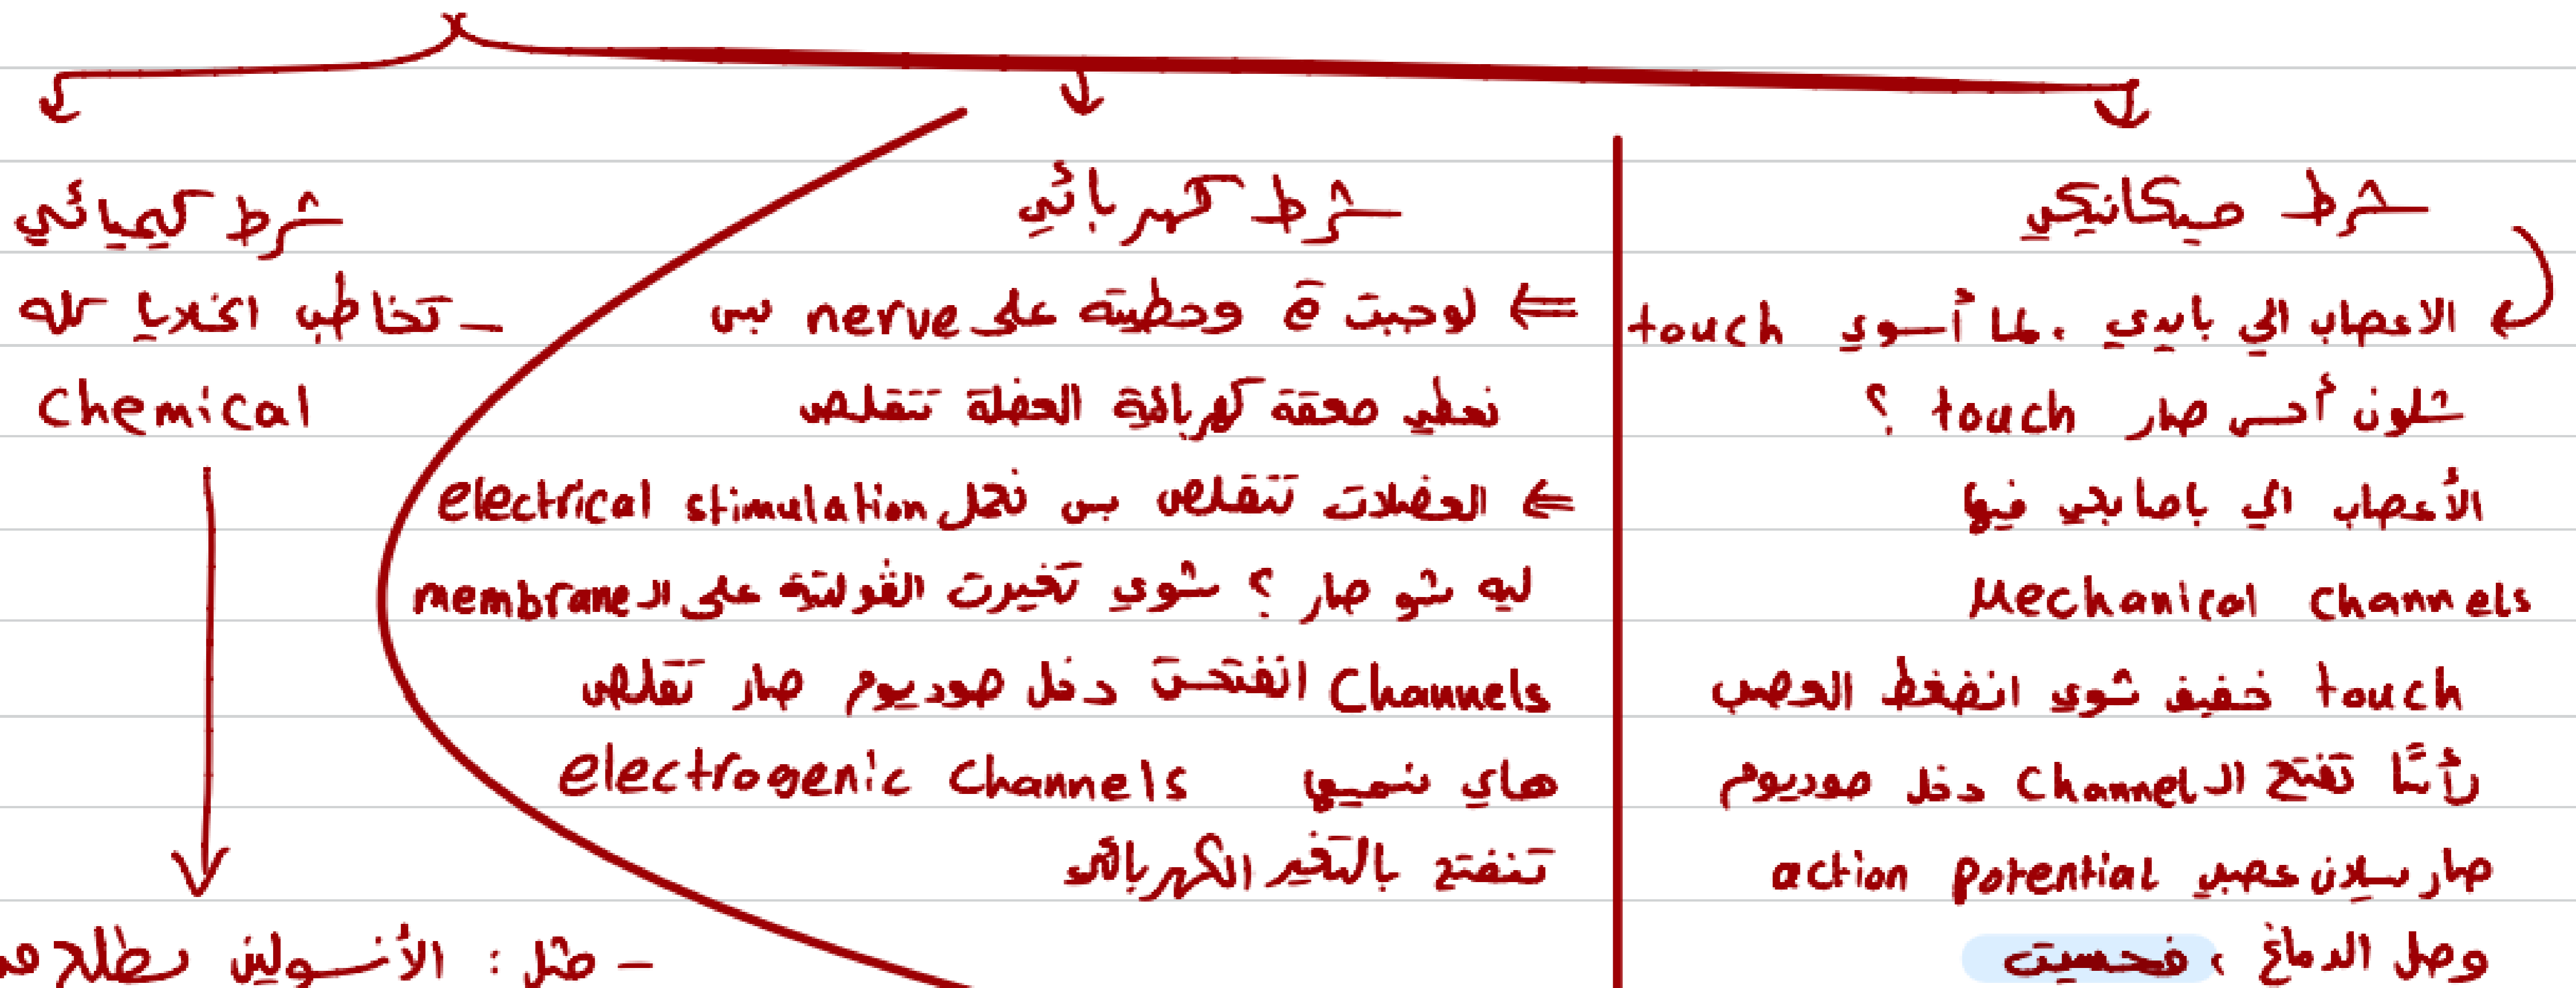 شرط ميكانيكي
الاعصاب الي بايدي ، لما أسوي touch
شلون أحس صار touch ؟
الأعصاب الي باصابعي فيها
Mechanical channels
touch خفيف شوي انضغط العصب
رأسًا تفتح الـ Channel دخل صوديوم
صار سيلان عصبي action potential
وصل الدماغ ، فحسيت
شرط كهربائي
⇐ لو جبت ē وحطيته على nerve بس
نعطي صعقة كهربائية العضلة تتقلص
⇐ العضلات تتقلص بس نعمل electrical stimulation
ليه شو صار ؟ شوي تغيرت الڤولتية على الـ membrane
Channels انفتحت دخل صوديوم صار تقلص
هاي نسميها electrogenic Channels
تنفتح بالتغير الكهربائي
شرط كيميائي
- تخاطب الخلايا كله
Chemical
- مثل : الأنسولين يطلع